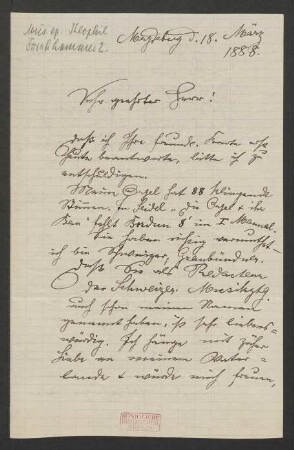 Mus. ep. Theophil
Forchhammer 2.
Magdeburg d. 18. März
1888.
Sehr geehrter Herr!
daß ich Ihre freundl. Karte erst
heute beantworte, bitte ich zu
entschuldigen.
Meine Orgel hat 88 klingende
Stimmen. In Seidel „Die Orgel & ihr
Bau" fehlt Bordun 8' im I Manual.
Sie haben richtig vermuthet
ich bin Schweizer, Graubündner.
Daß Sie als Redacteur
der Schweizer. Musikztg.
auch schon meinen Namen
genannt haben, ist sehr liebens-
würdig. Ich hänge mit
Liebe an meinem Vater-
lande & würde mich freuen,